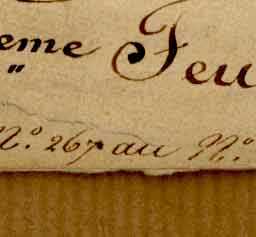 eme Feu
"
N.º 267 au N.º